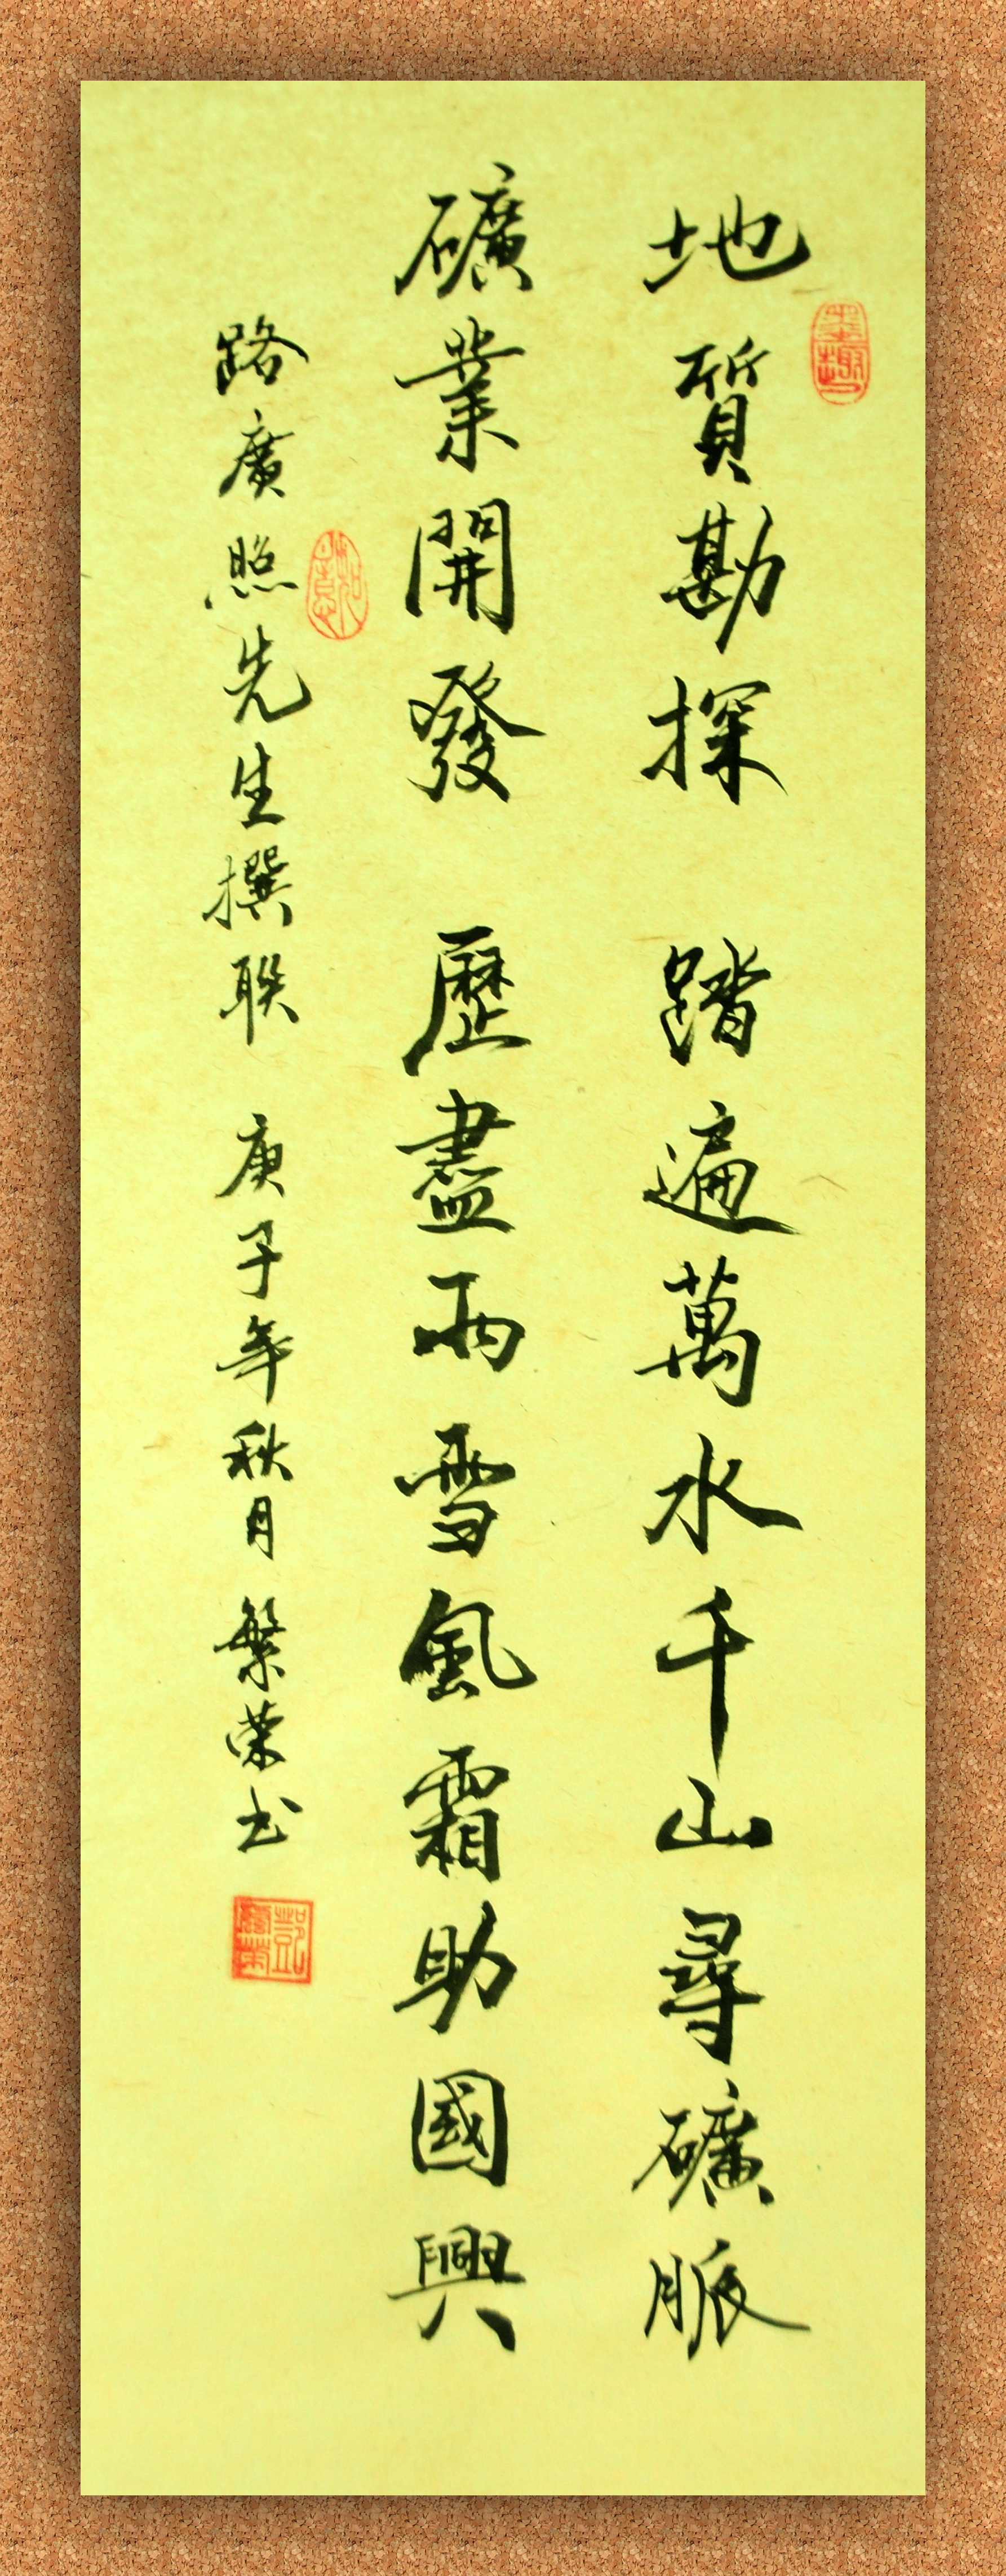 地質勘探 踏遍萬水千山尋礦脈
礦業開發 歷盡雨雪風霜助國興
路廣照先生撰聯 庚子年秋月 繁荣书